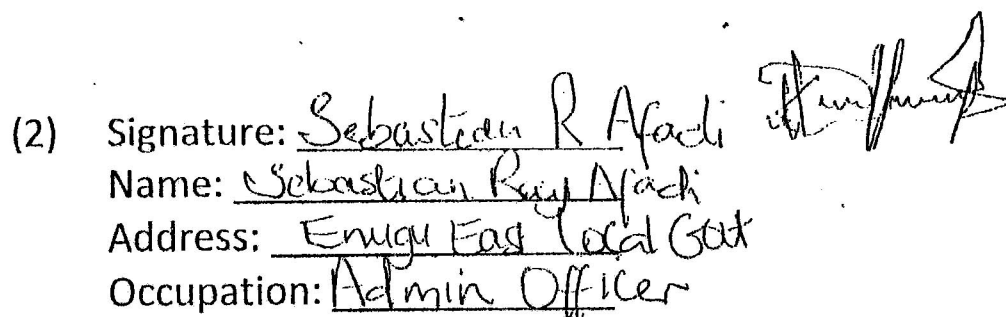 (2) Signature: Sebastian R Afadi
Name: Sebastian Ray Afadi
Address: Enugu East Local Govt
Occupation: Admin Officer